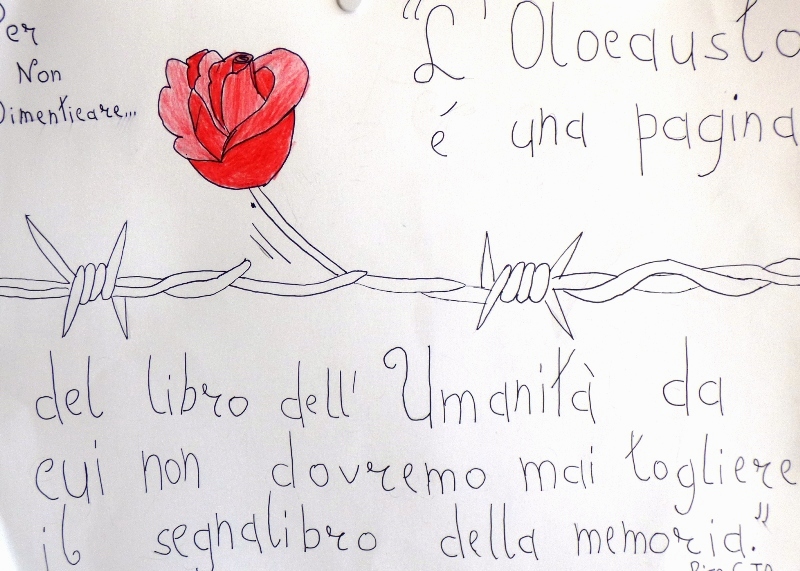 Per
Non
Dimenticare...
"L'Olocausto
é una pagina
del libro dell'Umanità da
cui non dovremo mai togliere
il segnalibro della memoria."